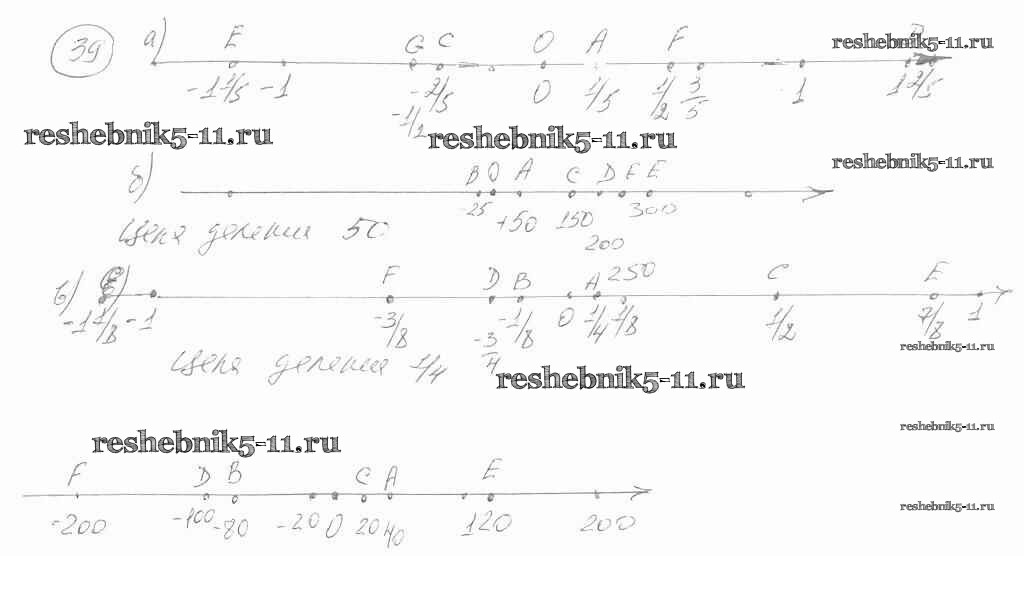 39 а) E G C O A F
-1 1/5 -1 -1/2 -2/5 0 1/5 1/2 3/5 1 1 2/5
reshebnik5-11.ru
reshebnik5-11.ru reshebnik5-11.ru
reshebnik5-11.ru
б) B O A C D F E
-25 +50 150 200 300
Цена деления 50
250
в) F D B A C E
-1 1/8 -1 -3/8 -3/4 -1/8 0 1/4 1/8 1/2 7/8 1
reshebnik5-11.ru
Цена деления 1/4
reshebnik5-11.ru
reshebnik5-11.ru
reshebnik5-11.ru
F D B C A E
-200 -100 -80 -20 0 20 40 120 200
reshebnik5-11.ru